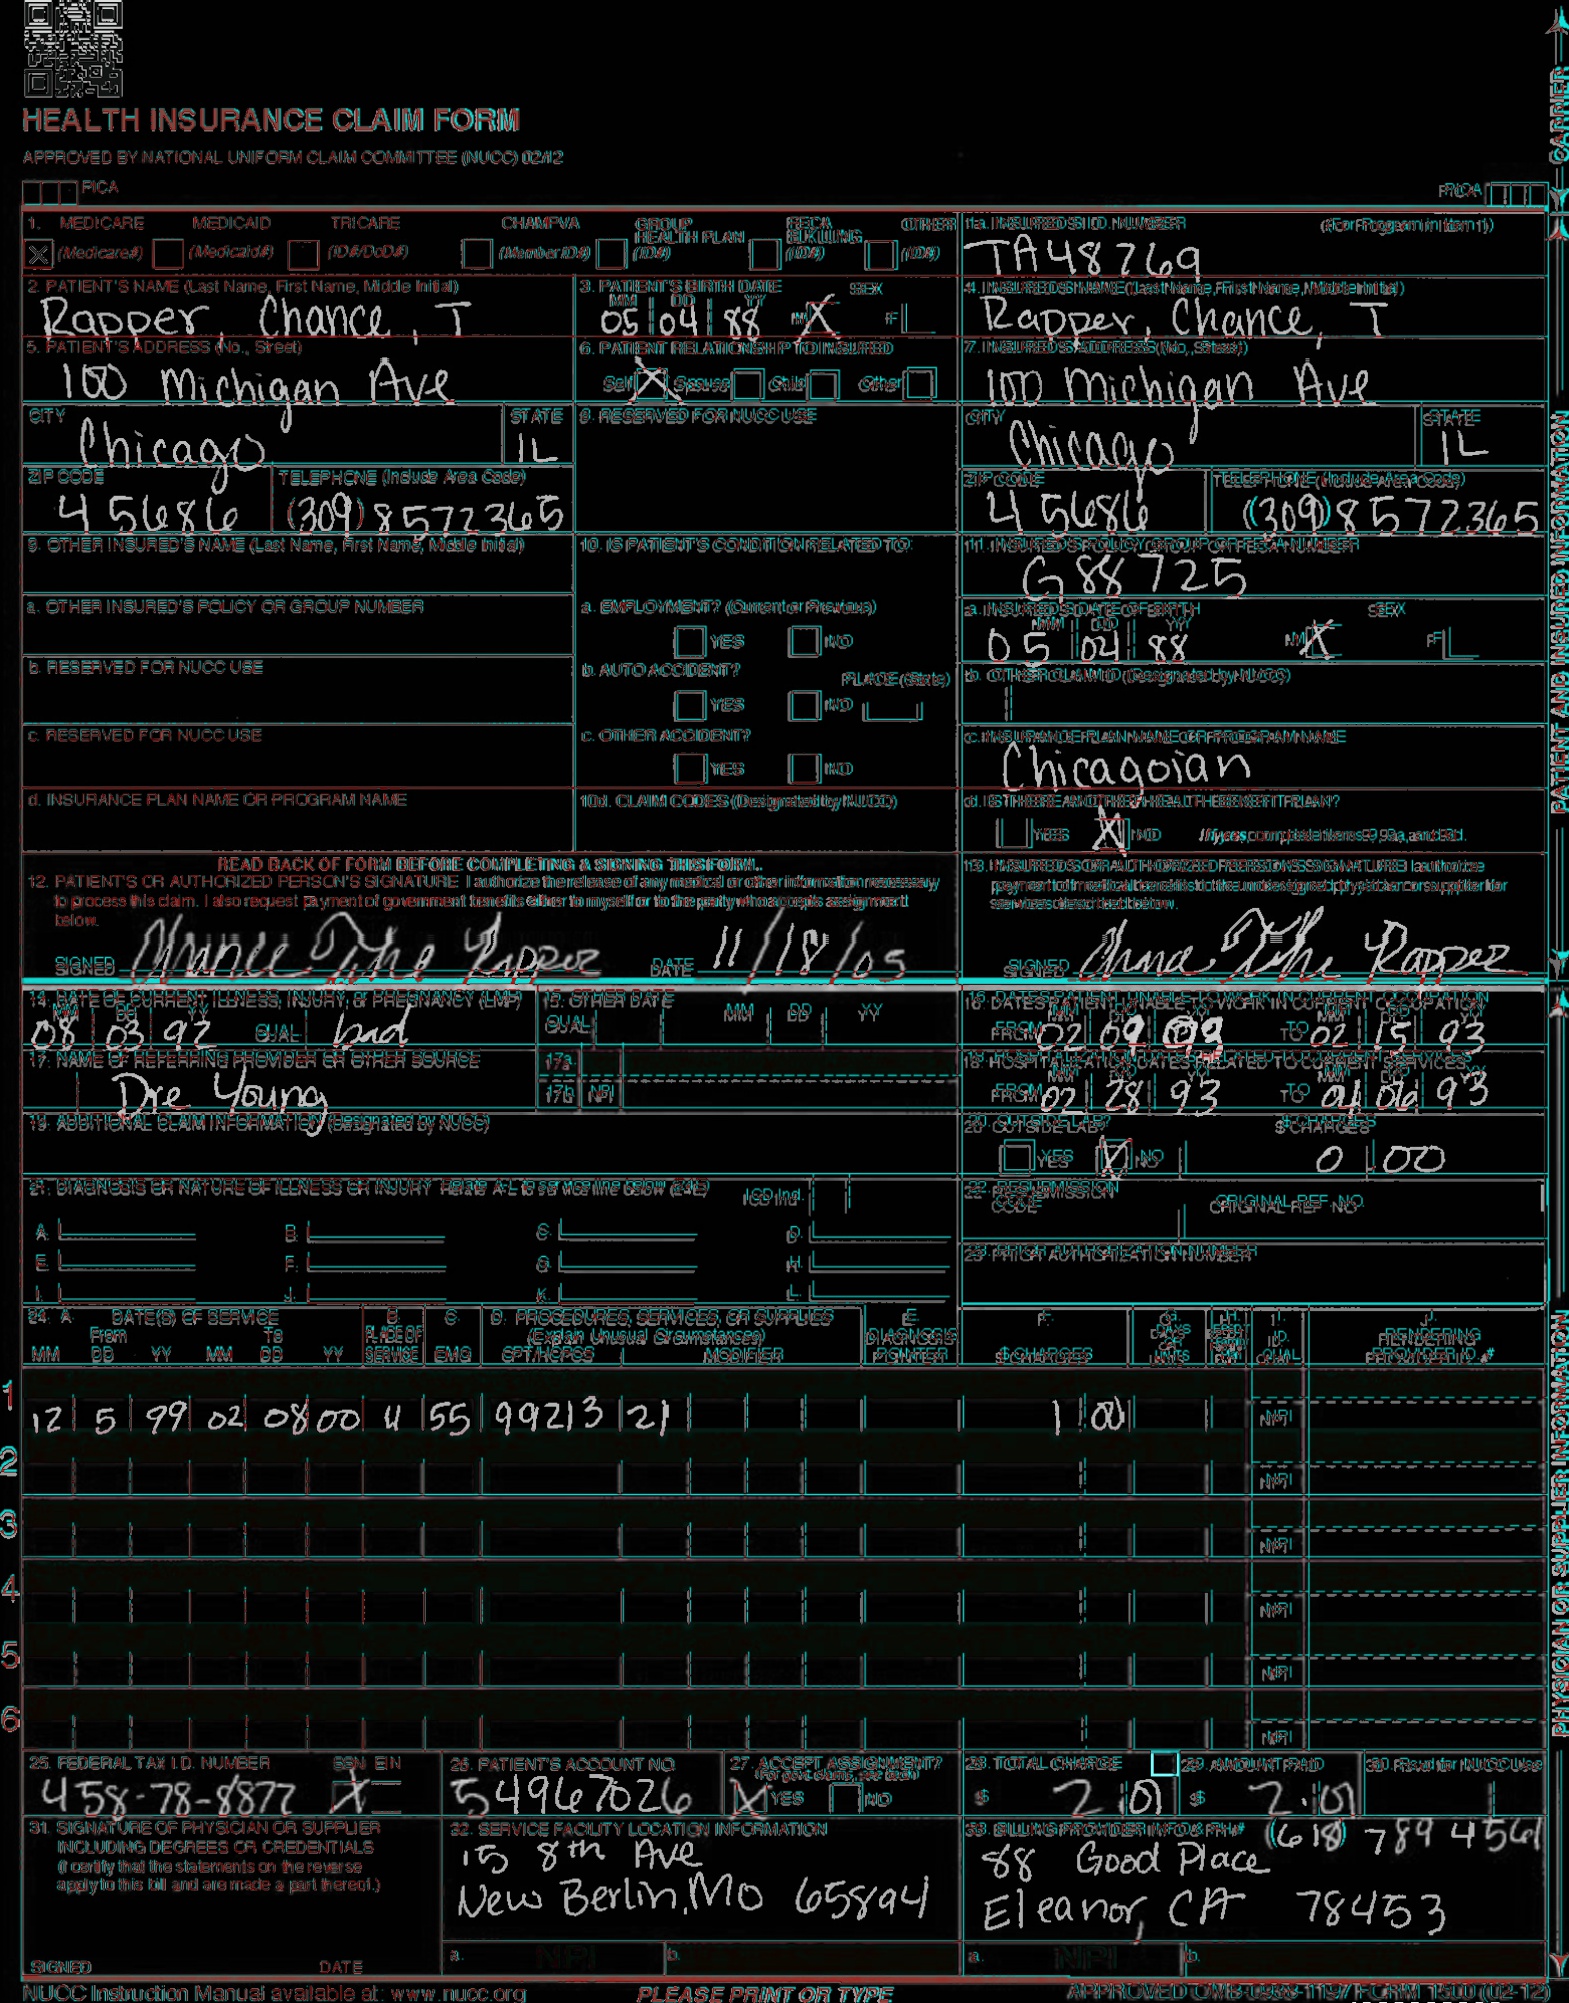 HEALTH INSURANCE CLAIM FORM
APPROVED BY NATIONAL UNIFORM CLAIM COMMITTEE (NUCC) 02/12
PICA
PICA
CARRIER
1. MEDICARE MEDICAID TRICARE CHAMPVA GROUP HEALTH PLAN FECA BLK LUNG OTHER
(Medicare#) (Medicaid#) (ID#/DoD#) (Member ID#) (ID#) (ID#) (ID#)
1a. INSURED'S I.D. NUMBER (For Program in Item 1)
TA48769
2. PATIENT'S NAME (Last Name, First Name, Middle Initial)
Rapper, Chance, T
3. PATIENT'S BIRTH DATE SEX
MM DD YY
05 04 88 M X F
4. INSURED'S NAME (Last Name, First Name, Middle Initial)
Rapper, Chance, T
5. PATIENT'S ADDRESS (No., Street)
100 Michigan Ave
6. PATIENT RELATIONSHIP TO INSURED
Self X Spouse Child Other
7. INSURED'S ADDRESS (No., Street)
100 Michigan Ave
CITY STATE
Chicago IL
8. RESERVED FOR NUCC USE
CITY STATE
Chicago IL
ZIP CODE TELEPHONE (Include Area Code)
45686 (309) 8572365
ZIP CODE TELEPHONE (Include Area Code)
45686 (309) 8572365
9. OTHER INSURED'S NAME (Last Name, First Name, Middle Initial)
10. IS PATIENT'S CONDITION RELATED TO:
11. INSURED'S POLICY GROUP OR FECA NUMBER
G88725
a. OTHER INSURED'S POLICY OR GROUP NUMBER
a. EMPLOYMENT? (Current or Previous)
YES NO
a. INSURED'S DATE OF BIRTH SEX
MM DD YY
05 04 88 M X F
b. RESERVED FOR NUCC USE
b. AUTO ACCIDENT? PLACE (State)
YES NO
b. OTHER CLAIM ID (Designated by NUCC)
c. RESERVED FOR NUCC USE
c. OTHER ACCIDENT?
YES NO
c. INSURANCE PLAN NAME OR PROGRAM NAME
Chicagoian
d. INSURANCE PLAN NAME OR PROGRAM NAME
10d. CLAIM CODES (Designated by NUCC)
d. IS THERE ANOTHER HEALTH BENEFIT PLAN?
YES X NO If yes, complete items 9, 9a, and 9d.
PATIENT AND INSURED INFORMATION
READ BACK OF FORM BEFORE COMPLETING & SIGNING THIS FORM.
12. PATIENT'S OR AUTHORIZED PERSON'S SIGNATURE I authorize the release of any medical or other information necessary
to process this claim. I also request payment of government benefits either to myself or to the party who accepts assignment
below.
SIGNED Chance The Rapper DATE 11/18/05
13. INSURED'S OR AUTHORIZED PERSON'S SIGNATURE I authorize
payment of medical benefits to the undersigned physician or supplier for
services described below.
SIGNED Chance The Rapper
14. DATE OF CURRENT ILLNESS, INJURY, or PREGNANCY (LMP)
MM DD YY
08 03 92 QUAL. bad
15. OTHER DATE
QUAL. MM DD YY
16. DATES PATIENT UNABLE TO WORK IN CURRENT OCCUPATION
MM DD YY MM DD YY
FROM 02 09 TO 02 15 93
17. NAME OF REFERRING PROVIDER OR OTHER SOURCE
Dre Young
17a.
17b. NPI
18. HOSPITALIZATION DATES RELATED TO CURRENT SERVICES
MM DD YY MM DD YY
FROM 02 28 93 TO 93
19. ADDITIONAL CLAIM INFORMATION (Designated by NUCC)
20. OUTSIDE LAB? $ CHARGES
YES X NO 0 00
21. DIAGNOSIS OR NATURE OF ILLNESS OR INJURY Relate A-L to service line below (24E) ICD Ind.
A. B. C. D.
E. F. G. H.
I. J. K. L.
22. RESUBMISSION CODE ORIGINAL REF. NO.
23. PRIOR AUTHORIZATION NUMBER
24. A. DATE(S) OF SERVICE B. PLACE OF SERVICE C. EMG D. PROCEDURES, SERVICES, OR SUPPLIES E. DIAGNOSIS POINTER
From To (Explain Unusual Circumstances)
MM DD YY MM DD YY CPT/HCPCS MODIFIER
F. $ CHARGES G. DAYS OR UNITS H. I. ID. QUAL. J. RENDERING PROVIDER ID. #
1 12 5 99 02 08 00 4 55 99213 21 1 00 NPI
2 NPI
3 NPI
4 NPI
5 NPI
6 NPI
PHYSICIAN OR SUPPLIER INFORMATION
25. FEDERAL TAX I.D. NUMBER SSN EIN
458-78-8877 X
26. PATIENT'S ACCOUNT NO.
54967026
27. ACCEPT ASSIGNMENT?
(For govt. claims, see back)
X YES NO
28. TOTAL CHARGE
$ 2 01
29. AMOUNT PAID
$ 2.01
30. Rsvd for NUCC Use
31. SIGNATURE OF PHYSICIAN OR SUPPLIER
INCLUDING DEGREES OR CREDENTIALS
(I certify that the statements on the reverse
apply to this bill and are made a part thereof.)
SIGNED DATE
32. SERVICE FACILITY LOCATION INFORMATION
15 8th Ave
New Berlin, Mo 65894
a. NPI b.
33. BILLING PROVIDER INFO & PH# (618) 789 4561
88 Good Place
Eleanor, CA 78453
a. NPI b.
NUCC Instruction Manual available at: www.nucc.org
PLEASE PRINT OR TYPE
APPROVED OMB-0938-1197 FORM 1500 (02-12)